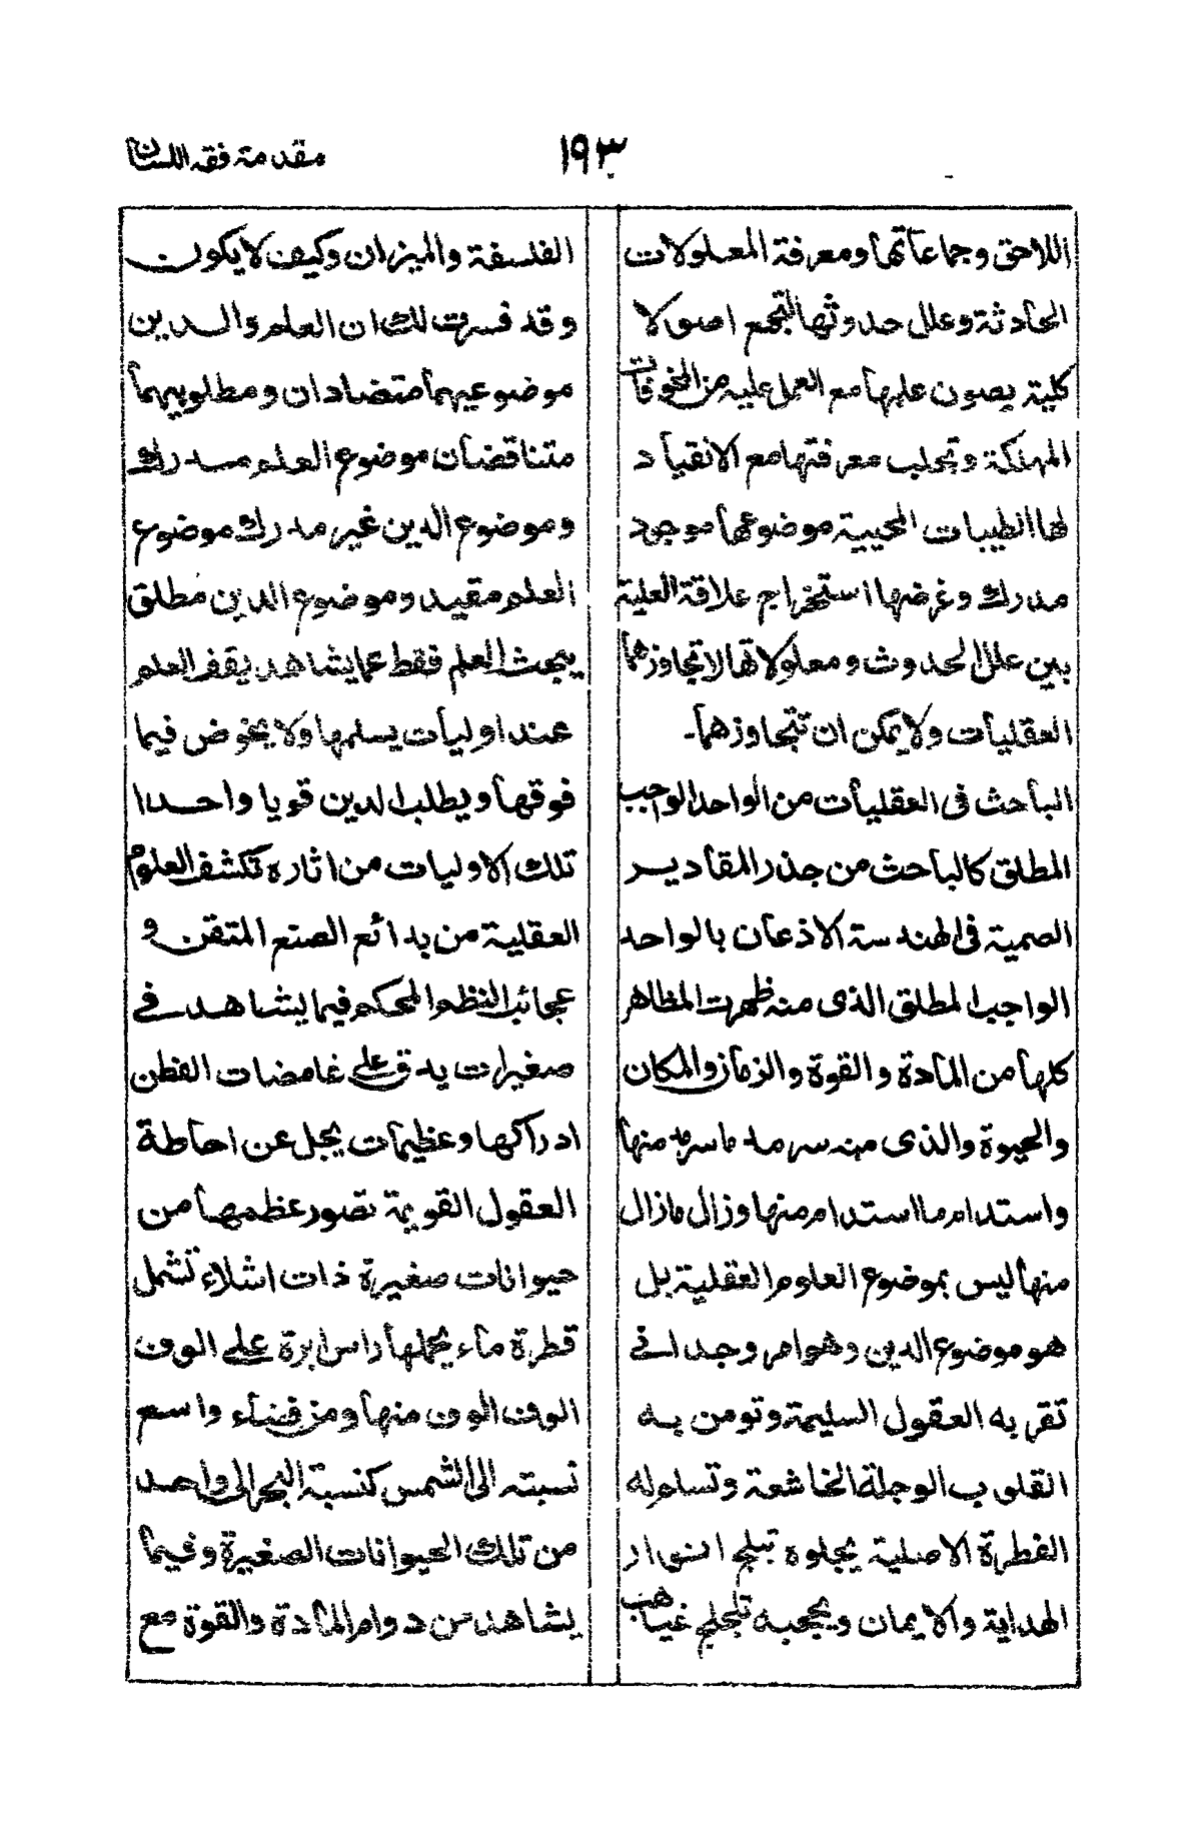 مقدمة فقه اللسان
١٩٣
اللاحق وجماعاتها ومعرفة المعلولات
الحادثة وعلل حدوثها لتجمع اصولا
كلية يصون علمها مع العمل عليه من المخوفات
المهلكة وتجلب معرفتها مع الانقياد
لها الطيبات المحيية موضوعها موجود
مدرك وغرضها استخراج علاقة العلية
بين علل الحدوث ومعلولاتها لا تجاوزهما
العقليات ولا يمكن ان تتجاوزهما۔
الباحث فى العقليات من الواحد الواجب
المطلق كالباحث من جذر المقادير
الصمية فى الهندسة الاذعان بالواحد
الواجب المطلق الذى منه ظهرت المظاهر
كلها من المادة والقوة والزمان والمكان
والحيوة والذى منه سرمد ما سرمد منها
واستدام ما استدام منها وزال ما زال
منها ليس بموضوع العلوم العقلية بل
هو موضوع الدين وهو امر وجدانى
تقر به العقول السليمة وتومن به
القلوب الوجلة الخاشعة وتسلم له
الفطرة الاصلية يجلوه تبلج انوار
الهداية والايمان ويحجبه تلجلج غياهب
الفلسفة والميزان وكيف لا يكون
وقد فسرت لك ان العلم والدين
موضوعيهما متضادان ومطلوبيهما
متناقضان موضوع العلم مدرك
وموضوع الدين غير مدرك موضوع
العلم مقيد وموضوع الدين مطلق
يبحث العلم فقط عما يشاهد يقف العلم
عند اوليات يسلمها ولا يخوض فيما
فوقها ويطلب الدين قويا واحدا
تلك الاوليات من اثاره تكشف العلوم
العقلية من بدائع الصنع المتقن و
عجائب النظم المحكم فيما يشاهد فى
صغيرات يدق على غامضات الفطن
ادراكها وعظيمات يجل عن احاطة
العقول القويمة تصور عظمها من
حيوانات صغيرة ذات اشلاء تشمل
قطرة ماء يحملها راس ابرة على الوف
الوف الوف منها ومن فضاء واسع
نسبته الى الشمس كنسبة البحر الى واحد
من تلك الحيوانات الصغيرة وفيما
يشاهد من دوام المادة والقوة مع